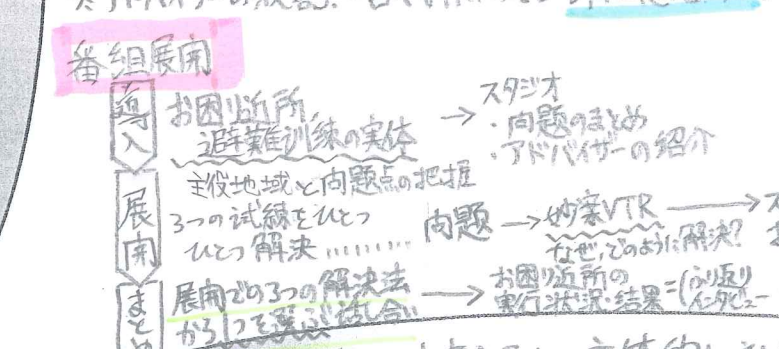 番組展開
導入
お困り近所、
避難訓練の実体
→ スタジオ
・問題のまとめ
・アドバイザーの紹介
展開
主役地域と問題点の把握
3つの試練をひとつ
ひとつ解決………
問題 → 妙案VTR →
なぜ、どのように解決?
まとめ
展開での3つの解決法
から1つを選ぶ話し合い
→ お困り近所の
実行状況・結果=(ふり返り
インタビュー